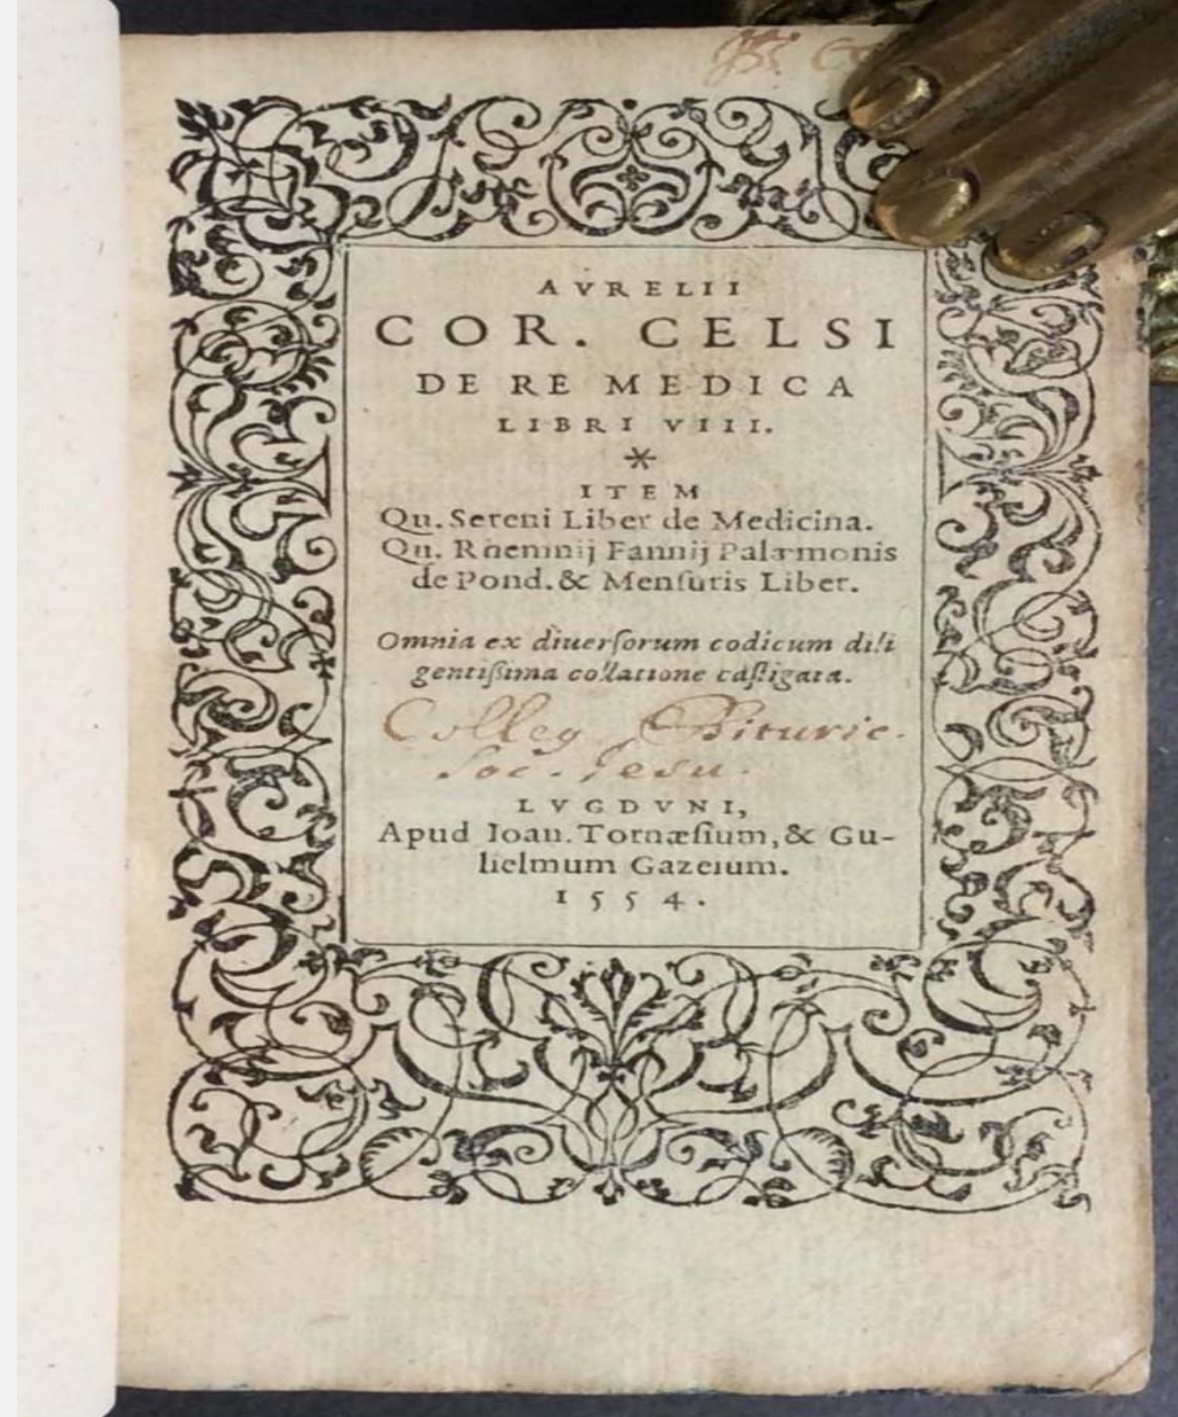 AVRELII
COR. CELSI
DE RE MEDICA
LIBRI VIII.
*
ITEM
Qu. Sereni Liber de Medicina.
Qu. Rhemnij Fannij Palæmonis
de Pond. & Menſuris Liber.
Omnia ex diuerſorum codicum dili
gentiſsima collatione caſtigata.
Colleg Bituric.
Soc. Jesu.
LVGDVNI,
Apud Ioan. Tornæſium, & Gu-
lielmum Gazeium.
1554.